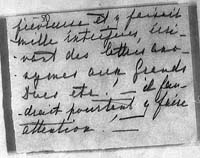 fiévreuse Et y faisait
mille intrigues, écri-
vant des lettres ano-
nymes aux Grands
Ducs etc. — il fau-
drait pourtant y faire
attention. —